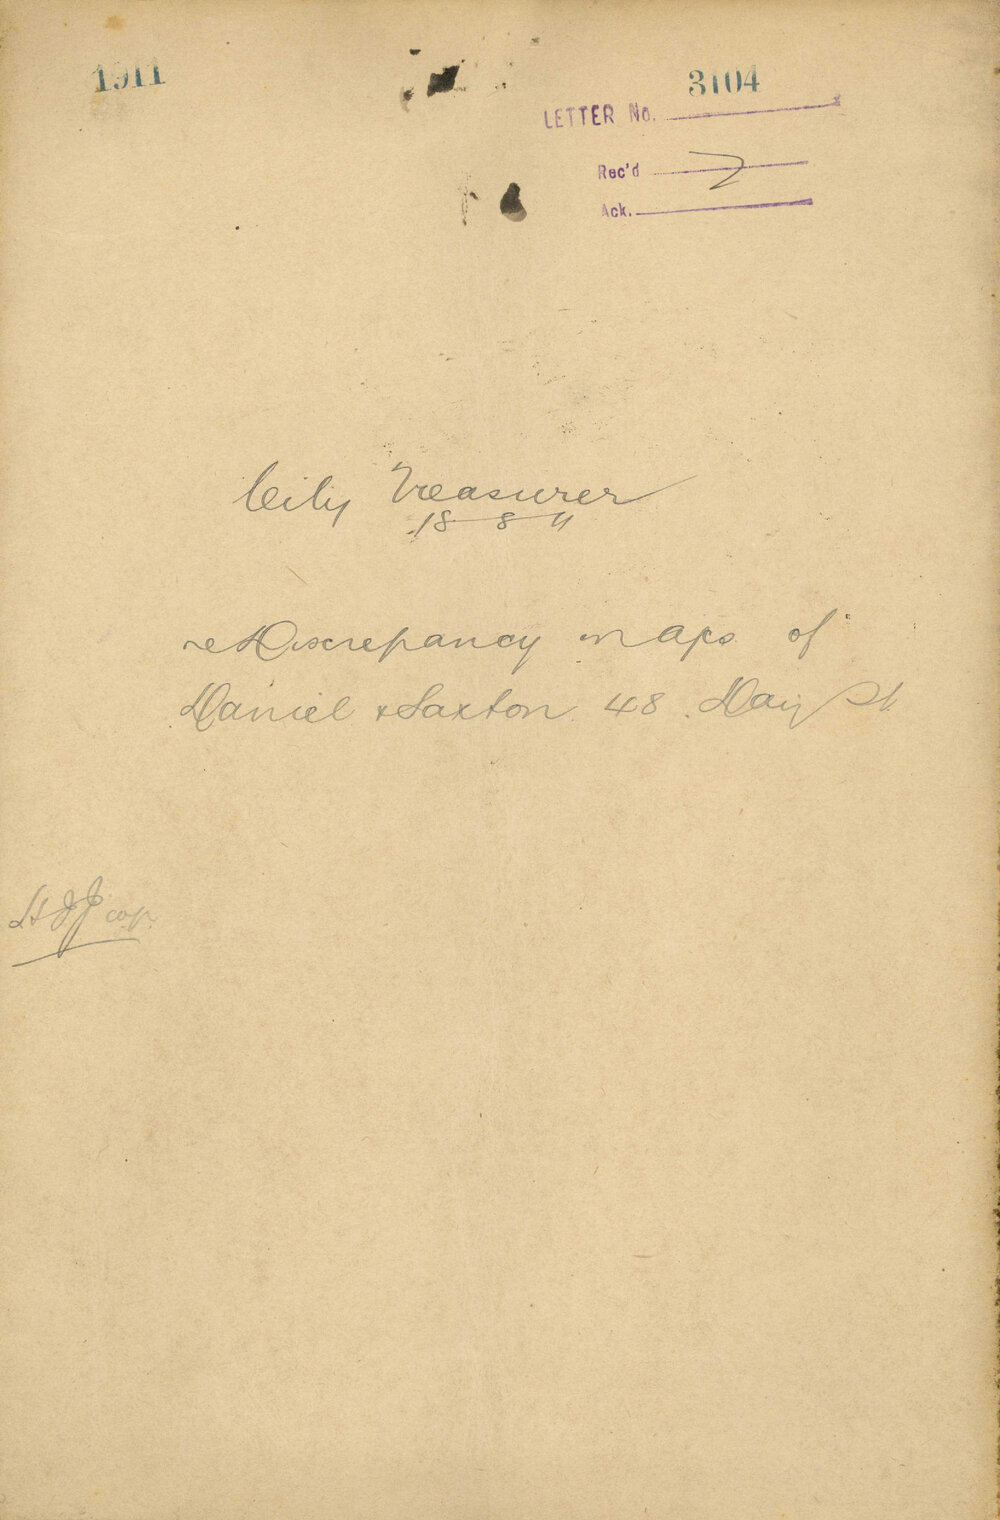 1911
3104
LETTER No.
Rec'd
Ack.
City Treasurer
18-8-11
re Discrepancy in a/cs of
Daniel & Saxton 48 Day St